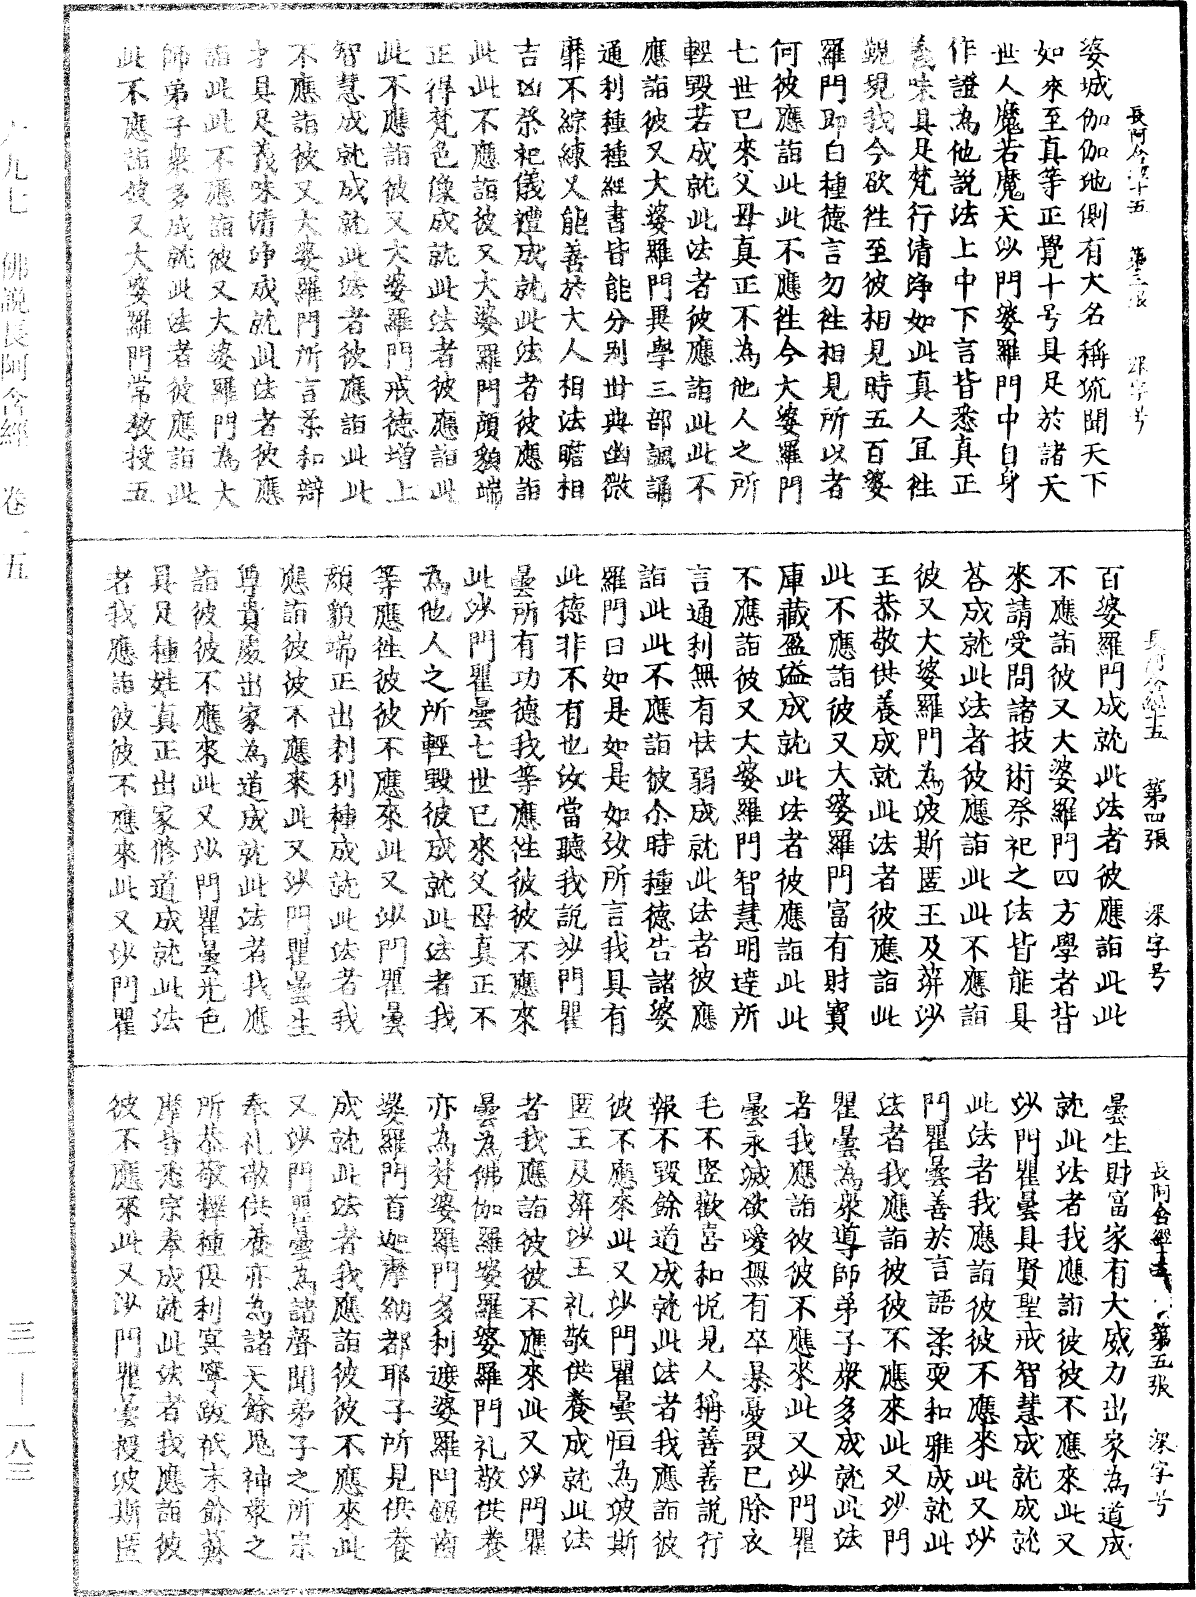 長阿含經十五 第三張 深字号
婆城伽伽池側有大名稱流聞天下
如來至真等正覺十号具足於諸天
世人魔若魔天沙門婆羅門中自身
作證為他說法上中下言皆悉真正
義味具足梵行清淨如此真人宜往
覲現我今欲往至彼相見時五百婆
羅門即白種德言勿往相見所以者
何彼應詣此此不應往今大婆羅門
七世已來父母真正不為他人之所
輕毀若成就此法者彼應詣此此不
應詣彼又大婆羅門異學三部諷誦
通利種種經書皆能分別世典幽微
靡不綜練又能善於大人相法瞻相
吉凶祭祀儀禮成就此法者彼應詣
此此不應詣彼又大婆羅門顏貌端
正得梵色像成就此法者彼應詣此
此不應詣彼又大婆羅門戒德增上
智慧成就成就此法者彼應詣此此
不應詣彼又大婆羅門所言柔和辯
才具足義味清淨成就此法者彼應
詣此此不應詣彼又大婆羅門為大
師弟子眾多成就此法者彼應詣此
此不應詣彼又大婆羅門常教授五
長阿含經十五 第四張 深字号
百婆羅門成就此法者彼應詣此此
不應詣彼又大婆羅門四方學者皆
來請受問諸技術祭祀之法皆能具
荅成就此法者彼應詣此此不應詣
彼又大婆羅門為波斯匿王及蓱沙
王恭敬供養成就此法者彼應詣此
此不應詣彼又大婆羅門富有財寶
庫藏盈溢成就此法者彼應詣此此
不應詣彼又大婆羅門智慧明達所
言通利無有怯弱成就此法者彼應
詣此此不應詣彼尒時種德告諸婆
羅門曰如是如是如汝所言我具有
此德非不有也汝當聽我說沙門瞿
曇所有功德我等應往彼彼不應來
此沙門瞿曇七世已來父母真正不
為他人之所輕毀彼成就此法者我
等應往彼彼不應來此又沙門瞿曇
顏貌端正出剎利種成就此法者我
應詣彼彼不應來此又沙門瞿曇生
尊貴處出家為道成就此法者我應
詣彼彼不應來此又沙門瞿曇光色
具足種姓真正出家修道成就此法
者我應詣彼彼不應來此又沙門瞿
長阿含經十五 第五張 深字号
曇生財富家有大威力出家為道成
就此法者我應詣彼彼不應來此又
沙門瞿曇具賢聖戒智慧成就成就
此法者我應詣彼彼不應來此又沙
門瞿曇善於言語柔耎和雅成就此
法者我應詣彼彼不應來此又沙門
瞿曇為眾導師弟子眾多成就此法
者我應詣彼彼不應來此又沙門瞿
曇永滅欲愛無有卒暴憂畏已除衣
毛不竪歡喜和悅見人稱善善說行
報不毀餘道成就此法者我應詣彼
彼不應來此又沙門瞿曇恒為波斯
匿王及蓱沙王礼敬供養成就此法
者我應詣彼彼不應來此又沙門瞿
曇為佛伽羅娑羅婆羅門礼敬供養
亦為梵婆羅門多利遮婆羅門鋸齒
婆羅門首迦摩納都耶子所見供養
成就此法者我應詣彼彼不應來此
又沙門瞿曇為諸聲聞弟子之所宗
奉礼敬供養亦為諸天餘鬼神眾之
所恭敬釋種俱利冥寧跋祇末餘蘇
摩皆悉宗奉成就此法者我應詣彼
彼不應來此又沙門瞿曇授波斯匿
六九七 佛說長阿含經 卷一五 三一—一八三